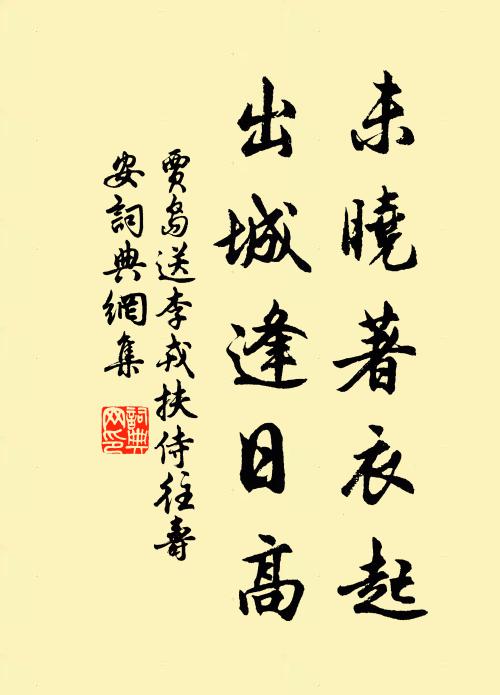 未曉著衣起
出城逢日高
賈島送李戎扶侍往壽
安詞典網集
詞典
网印